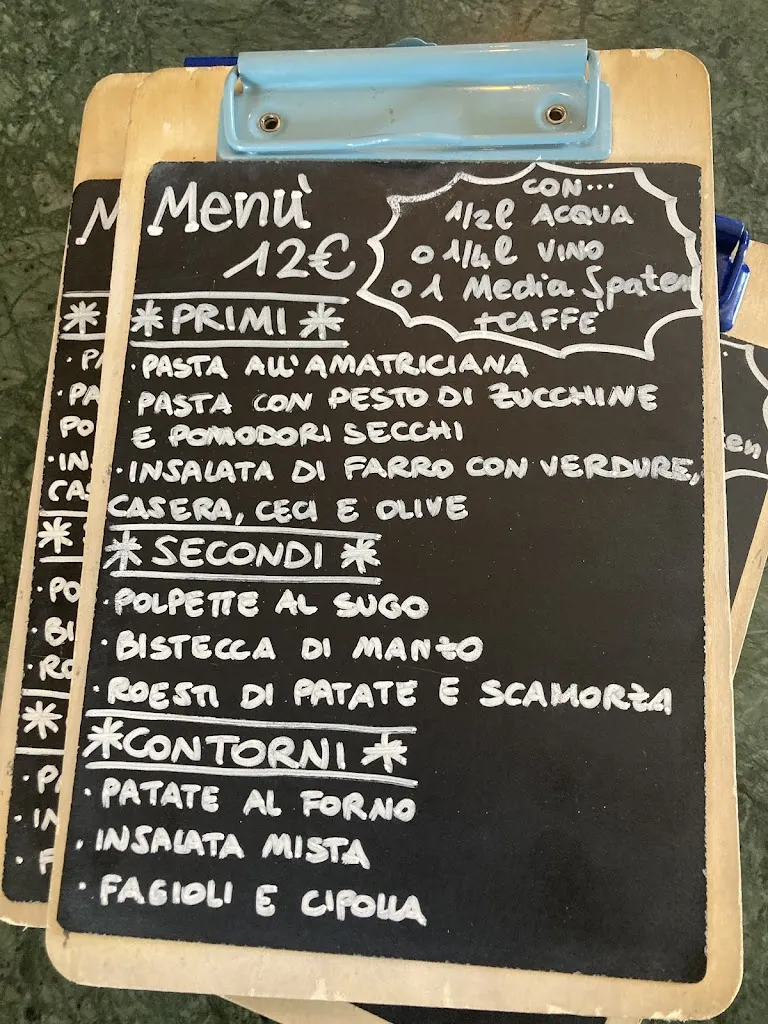 Menù
12€
CON...
1/2l ACQUA
o 1/4l VINO
o 1 Media Spaten
+CAFFE'
* PRIMI *
· PASTA ALL'AMATRICIANA
PASTA CON PESTO DI ZUCCHINE
E POMODORI SECCHI
· INSALATA DI FARRO CON VERDURE,
CASERA, CECI E OLIVE
* SECONDI *
· POLPETTE AL SUGO
· BISTECCA DI MANZO
· ROESTI DI PATATE E SCAMORZA
* CONTORNI *
· PATATE AL FORNO
· INSALATA MISTA
· FAGIOLI E CIPOLLA
M
*
· PA
· PA
PO
· IN
CAS
*
· PO
· BI
· RO
*
· PA
· IN
· F
en